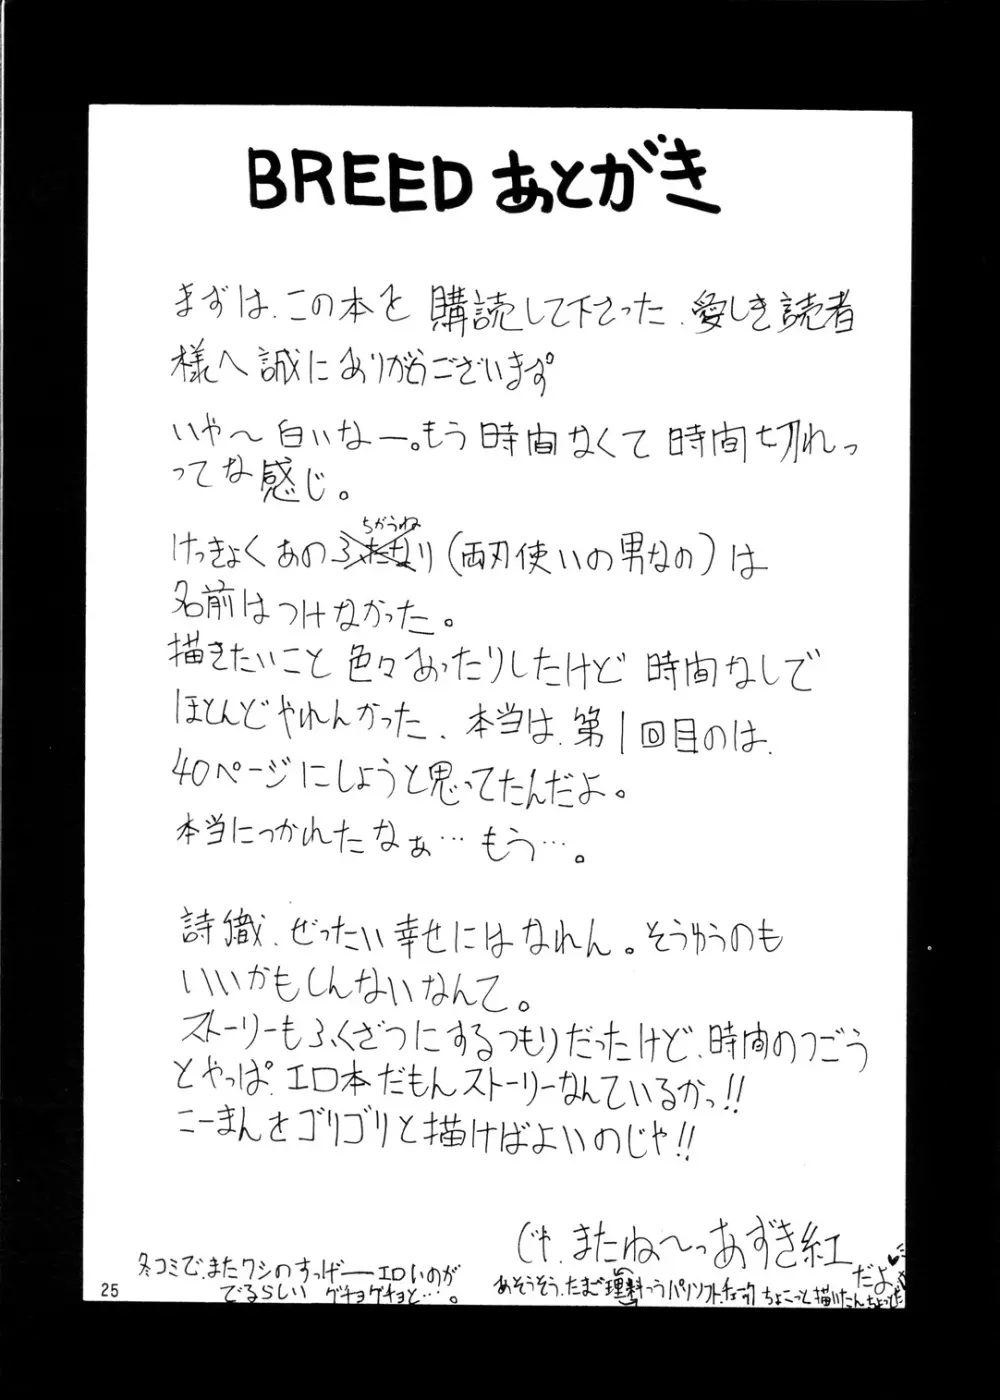 BREED あとがき
まずは、この本を購読して下さった、愛しき読者
様へ誠にありがとうございます。
いや〜白いなー。もう時間なくて時間切れっ
ってな感じ。
ちがうね
けっきょくあのふたなり(両刃使いの男なの)は
名前はつけなかった。
描きたいこと色々あったりしたけど時間なしで
ほとんどやれんかった、本当は、第1回目のは、
40ページにしようと思ってたんだよ。
本当につかれたなぁ…もう…。
詩織、ぜったい幸せにはなれん。そうゆうのも
いいかもしんないなんて。
ストーリーもふくざつにするつもりだったけど、時間のつごう
とやっぱ、エロ本だもんストーリーなんているかっ!!
こーまんをゴリゴリと描けばよいのじゃ!!
じゃ、またね〜っあずき紅
だよ♥
冬コミで、またワシのすっげーーエロいのが
でるらしい ゲチョゲチョと…。
あそうそう、たまご理料っつうパソソフト、チェーック ちょこっと描いたん
25